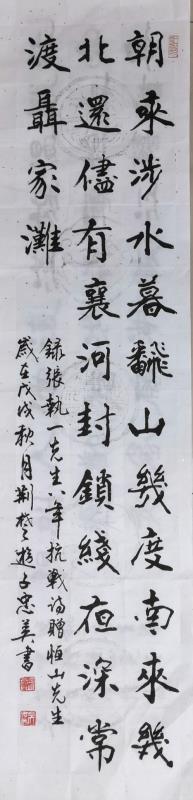 朝來涉水暮翻山幾度南來幾
北還儘有襄河封鎖綫夜深常
渡聶家灘
錄張執一先生八年抗戰詩贈恒山先生
歲在戊戌秋月荆楚遊子忠美書